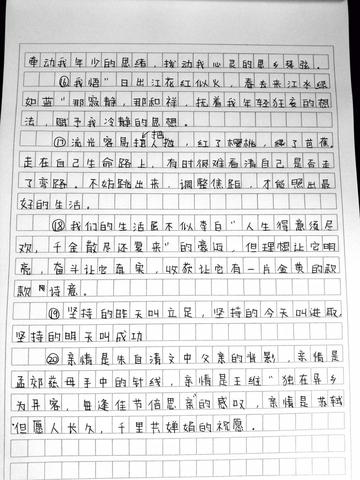 牵动我年少的思绪，拨动我心灵的思乡琴弦。
⑯我悟"日出江花红似火，春去来江水绿
如蓝"那寂静，那和祥，抚着我年轻狂妄的想
法，赋予我冷静的思想。
⑰流光容易把人抛，红了樱桃，绿了芭蕉
走在自己生命路上，有时很难看清自己是否走
了弯路。不妨跳出来，调整焦距，才能照出最
好的生活。
⑱我们的生活虽不似李白"人生得意须尽
欢，千金散尽还复来"的豪迈，但理想让它明
亮，奋斗让它真实，收获让它有一片金黄的
诗意。
⑲坚持的昨天叫立足，坚持的今天叫进取，
坚持的明天叫成功
⑳亲情是朱自清文中父亲的背影，亲情是
孟郊慈母手中的针线，亲情是王维"独在异乡
为异客，每逢佳节倍思亲"的感叹，亲情是苏轼
"但愿人长久，千里共婵娟的祝愿。